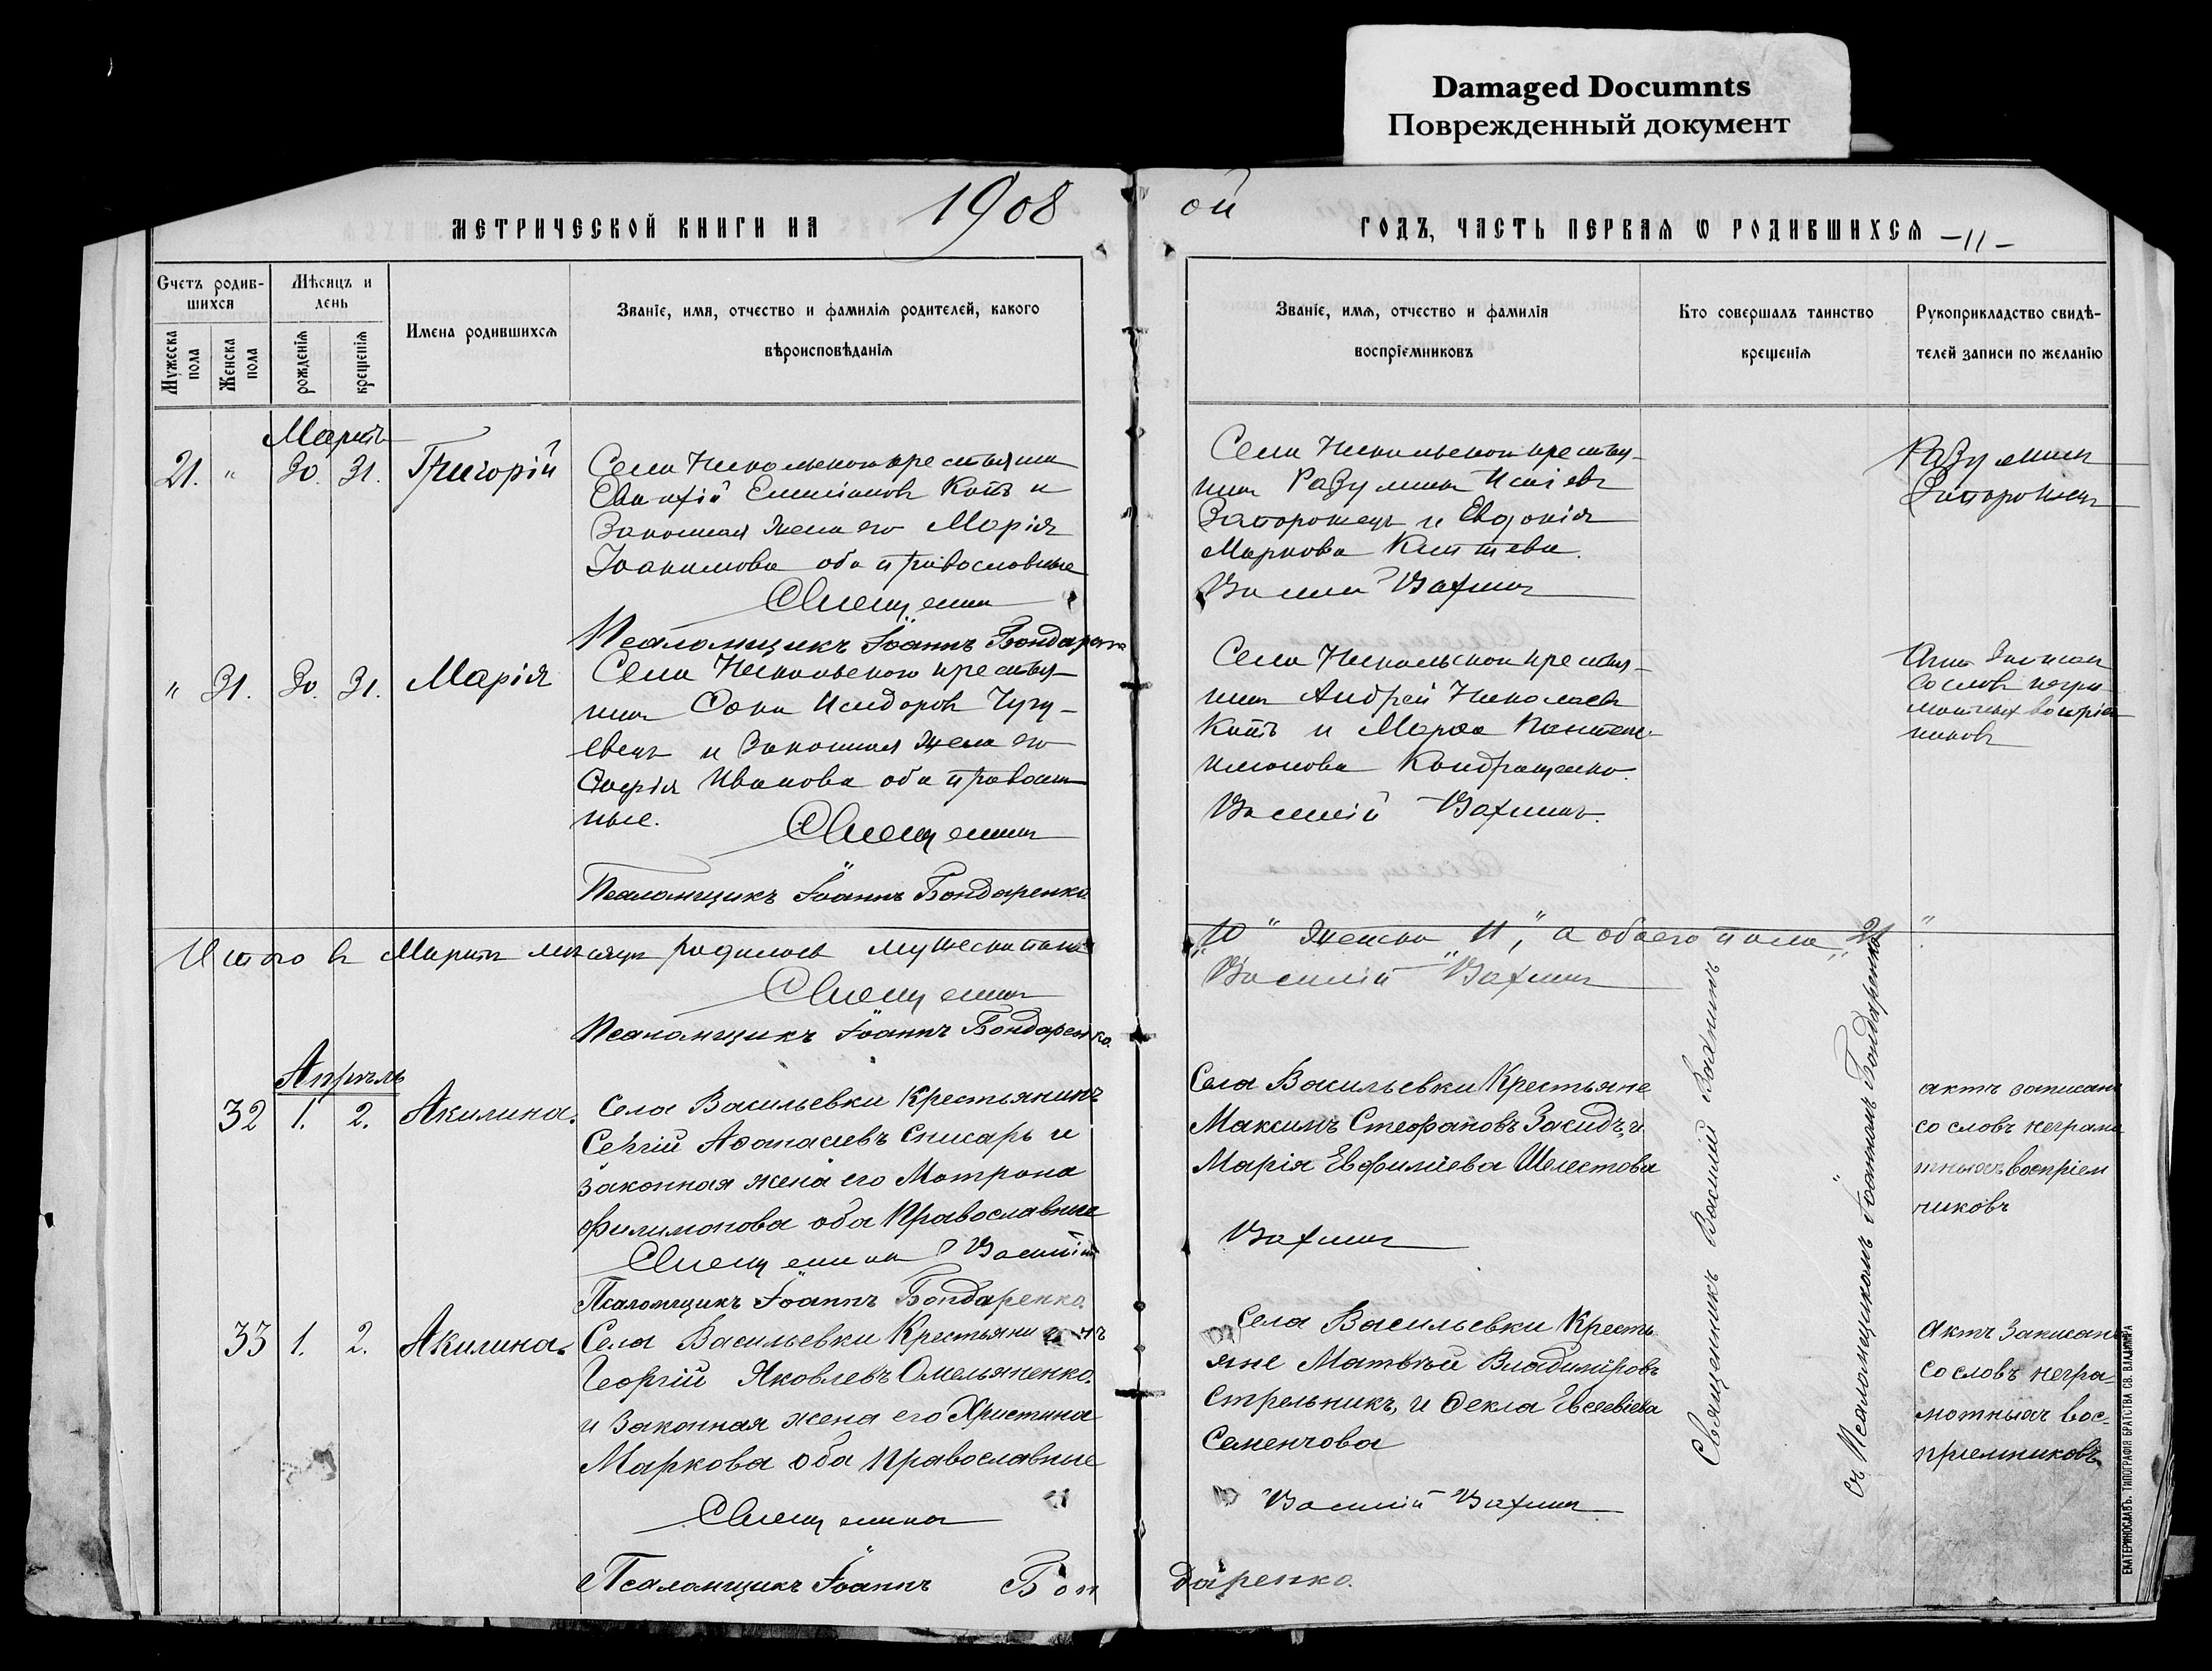 Damaged Documnts
Поврежденный документ
МЕТРИЧЕСКОЙ КНИГИ НА 1908
ой ГОДЪ, ЧАСТЬ ПЕРВАЯ Ѡ РОДИВШИХСЯ -11-
Счетъ родив-
шихся
Мѣсяцъ и
день
Мужеска
пола
Женска
пола
рожденія
крещенія
Имена родившихся
Званіе, имя, отчество и фамилія родителей, какого
вѣроисповѣданія
Званіе, имя, отчество и фамилія
воспріемниковъ
Кто совершалъ таинство
крещенія
Рукоприкладство свидѣ-
телей записи по желанію
Мартъ
21. " 30. 31. Григорій
Села Никольского крестьянин
Емиліановъ Котъ и
Законная жена его Марія
Іоакимова оба православные
Священник
Псаломщикъ Іоаннъ Бондаренко
Села Никольского крестья-
нин Разумник Исаіевъ
Запорожец и Евдокія
Маркова
Василій Вахнин
Разумник
Запорожец
" 31. 30. 31. Марія
Села Никольского крестья-
нин Фока Исидоров Чугу-
евец и Законная жена его
Софія Иванова оба православ-
ные.
Священник
Псаломщикъ Іоаннъ Бондаренко.
Села Никольского крестья-
нин Андрей Николаев
Котъ и Марѳа Пантеле-
имонова Кондращенко.
Василій Вахнинъ.
Акт записан
со слов негра-
мотных воспріем
ников
Итого в Март месяц родилось мужеска пола
"10" женска "11", а обоего пола "21".
Священник
Василій Вахнин
Псаломщикъ Іоаннъ Бондаренко.
Апрѣль
32 1. 2. Акилина.
Села Васильевки Крестьянинъ
Сергій Аѳанасіевъ Снисарь и
законная жена его Мотрона
Филимонова оба Православные
Священник Василій
Псаломщикъ Іоаннъ Бондаренко.
Села Васильевки Крестьяне
Максимъ Стефановъ Засидъ, и
Марія Евфиміева Шелестова
Вахнин
актъ записанъ
со словъ неграмо
тныхъ воспріем
никовъ
33 1. 2. Акилина.
Села Васильевки Крестьянинъ
Георгій Яковлевъ Омельяненко.
и Законная жена его Христина
Маркова оба православные
Священник
Псаломщикъ Іоаннъ Бон
даренко.
Села Васильевки Кресть
яне Матвѣй Владиміровъ
Стрельникъ, и Ѳекла Евсевіева
Семенчова
Василій Вахнин
Актъ Записанъ
со словъ негра-
мотныхъ вос-
пріемниковъ.
Священникъ Василій Вахнинъ
съ Псаломщикомъ Іоанномъ Бондаренко
ЕКАТЕРИНОСЛАВЪ. ТИПОГРАФІЯ БРАТСТВА СВ. ВЛАДИМІРА